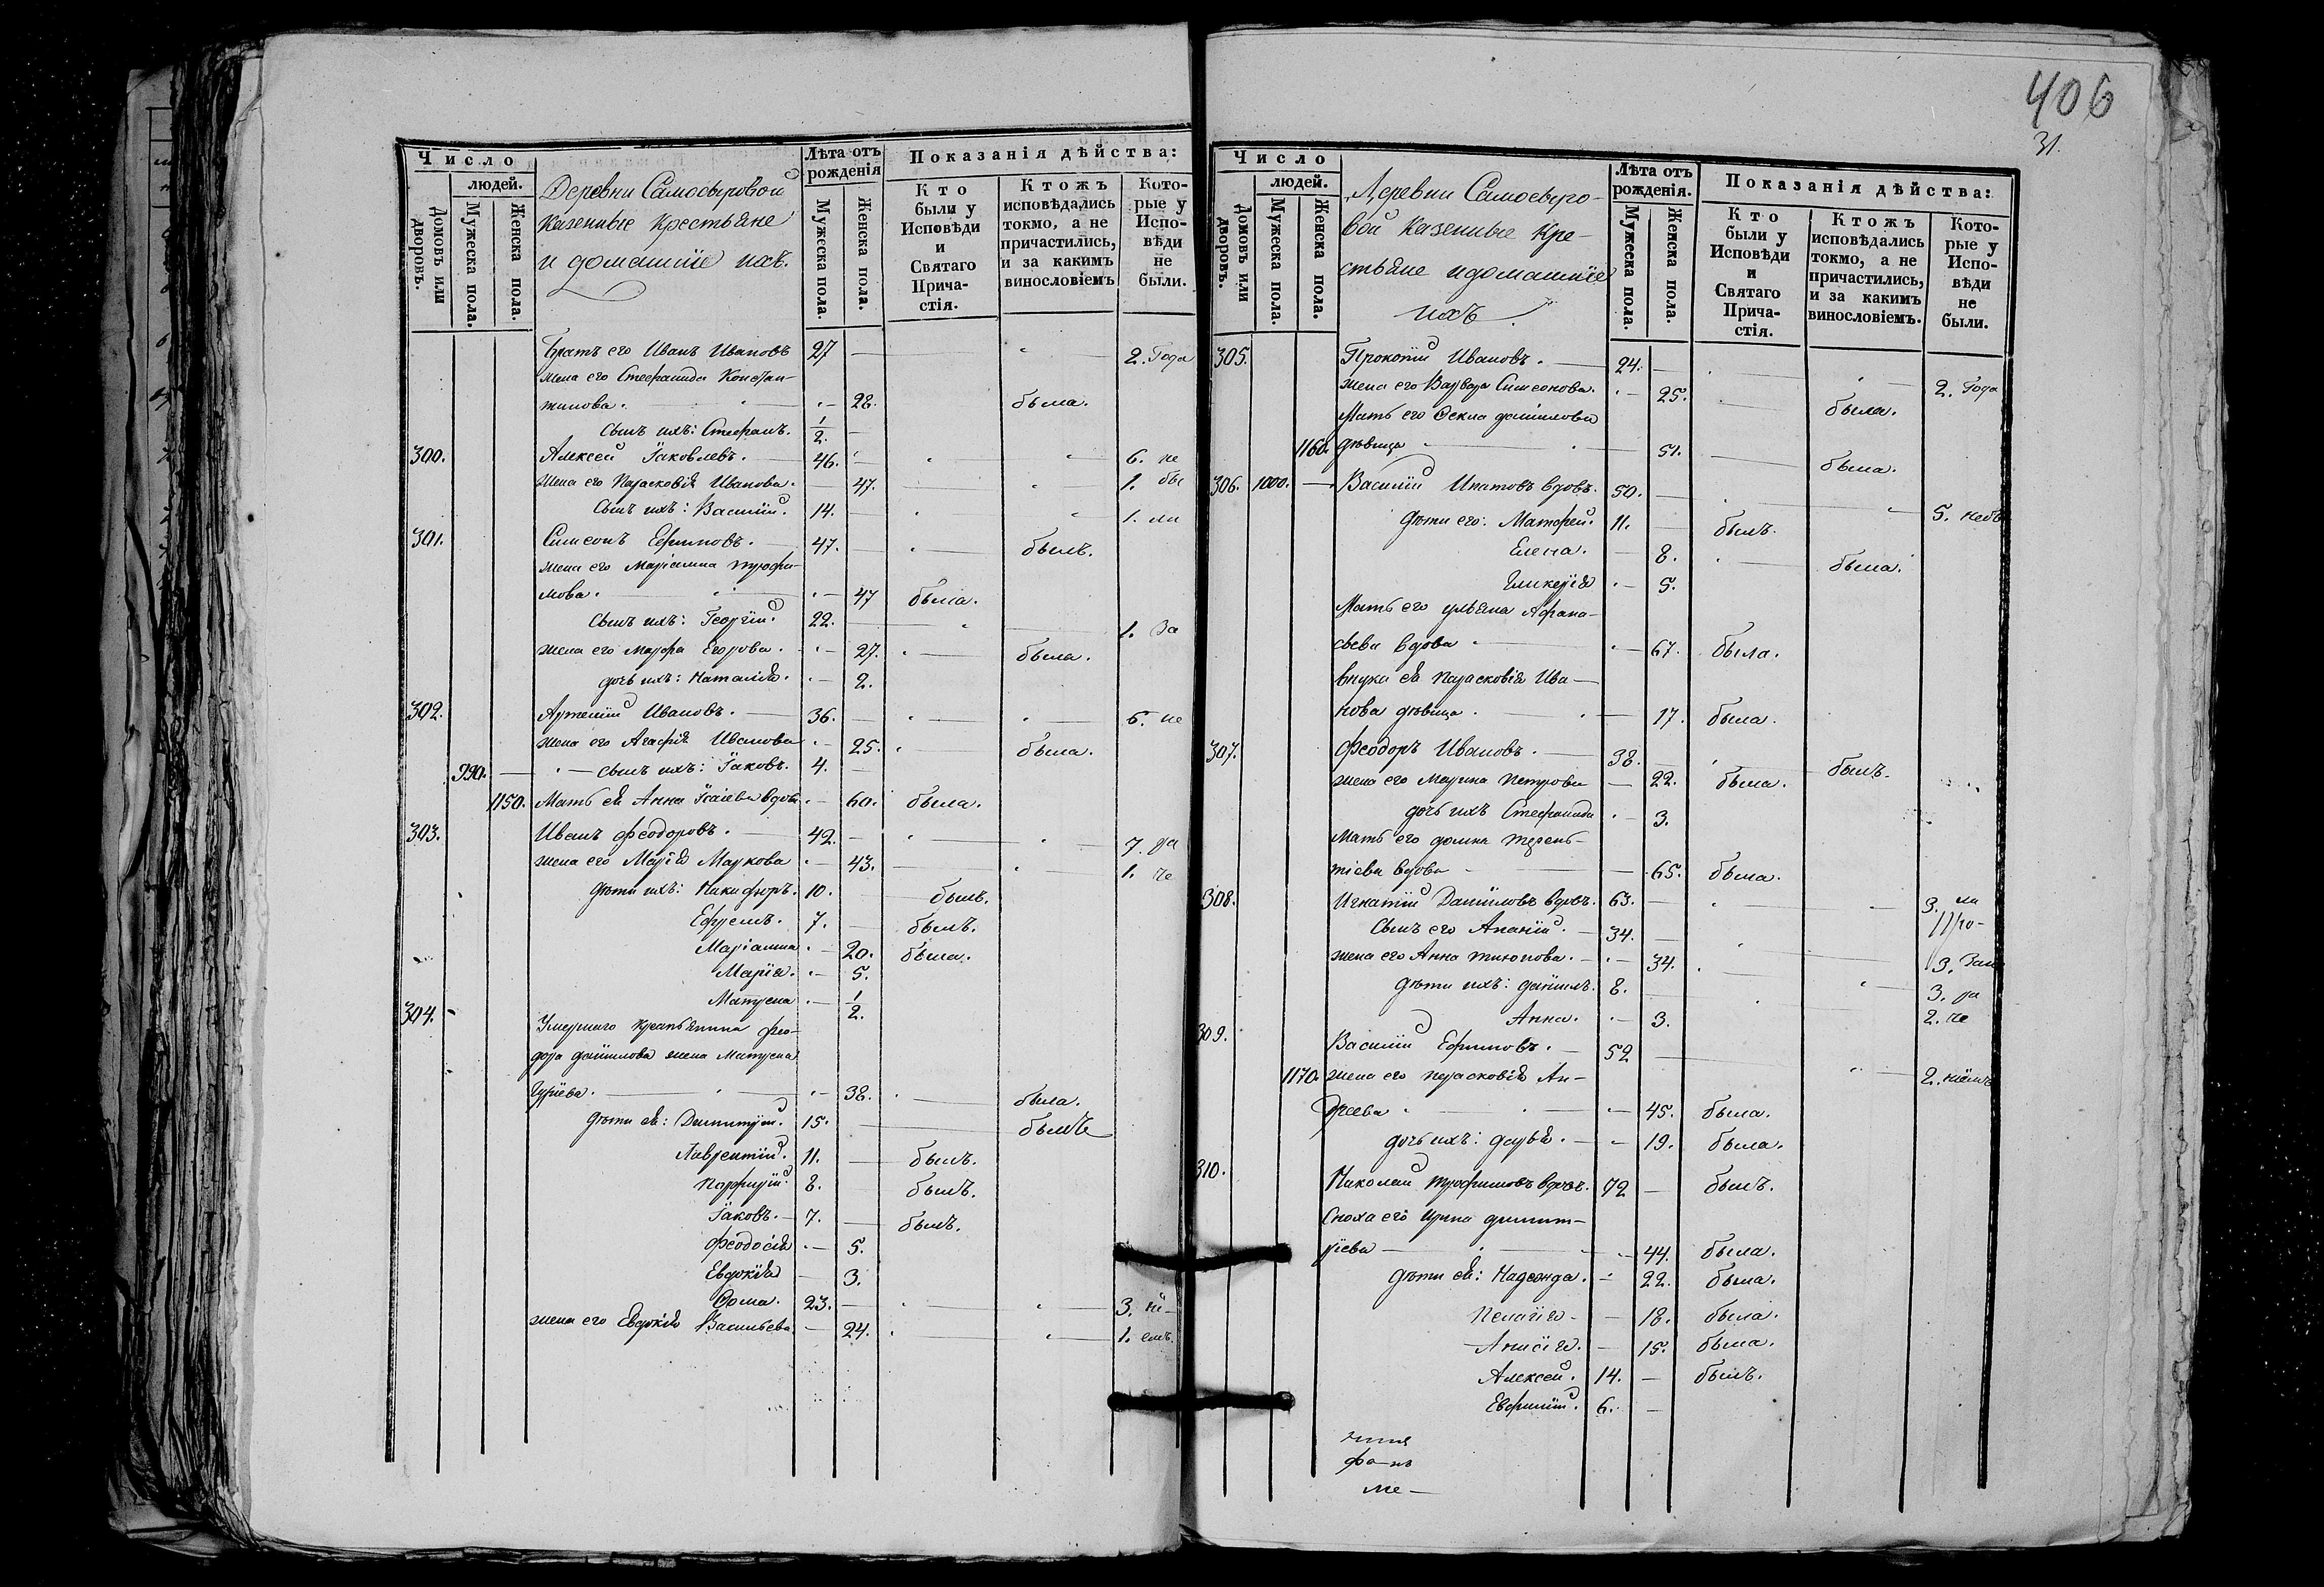 Число
людей.
Домовъ или дворовъ.
Мужеска пола.
Женска пола.
Деревни Самосыровой
казенные крестьяне
и домашніе ихъ.
Лѣта отъ рожденія
Мужеска пола.
Женска пола.
Показанія дѣйства:
Кто были у Исповѣди и Святаго Прича-стія.
Ктожъ исповѣдались токмо, а не причастились, и за какимъ винословіемъ
Кото-рые у Испо-вѣди не были.
Братъ его Иванъ Ивановъ 27 — 2. Года
жена его Стефанида Констан-
тинова. — 28. была.
Сынъ ихъ: Стефанъ. 1/2. —
300. Алексей Іаковлевъ. — 46. — 6. не
жена его Парасковія Иванова. — 47. — 1. бы
Сынъ ихъ: Василій. 14. — 1. ли
301. Симеонъ Ефимовъ. — 47. — былъ.
жена его Маріамна Трофи-
мова. — 47 была.
Сынъ ихъ: Георгій. 22. — 1. За
жена его Марфа Егорова. — 27. — была.
дочь ихъ: Наталія. — 2.
302. Артемій Ивановъ. — 36. — 6. не
жена его Агафія Иванова — 25. — была.
990. — сынъ ихъ: Іаковъ. 4. —
1150. Мать ея Анна Ісаіева вдова — 60. была.
303. Иванъ Феодоровъ. — 42. — 7. ра
жена его Марія Маркова — 43. — 1. че
дѣти ихъ: Никифоръ. 10. былъ.
Ефремъ. 7. — былъ.
Маріамна — 20. была.
Марія. — 5.
Матрена — 1/2.
304. Умершаго крестьянина Фео-
дора Данилова жена Матрена
Гуріева. — 38. — была.
дѣти ея: Димитрій. 15. — былъ
Лаврентій. 11. — былъ.
Парфирій. 8. былъ.
Іаковъ. — 7. — былъ.
Феодосія — 5.
Евдокія — 3.
Ѳома. 23. — 3. ні-
жена его Евдокія Васильева — 24. — 1. емъ.
406
31.
Число
людей.
Домовъ или дворовъ.
Мужеска пола.
Женска пола.
Деревни Самосыро-
вой казенные кре-
стьяне и домашніе
ихъ.
Лѣта отъ рожденія.
Мужеска пола.
Женска пола.
Показанія дѣйства:
Кто были у Исповѣди и Святаго Прича-стія.
Ктожъ исповѣдались токмо, а не причастились, и за какимъ винословіемъ.
Кото-рые у Испо-вѣди не были.
305. Прокопій Ивановъ. — 24. — 2. Года
жена его Варвара Симеонова. — 25. — была.
Мать его Ѳекла Данилова
1160. дѣвица — 51. — была.
306. 1000. — Василій Ипатовъ вдовъ. 50. — 5. небы
дѣти его: Матфей. 11. — былъ.
Елена. — 8. — была.
Гликерія — 5.
Мать его Ульяна Афана-
сьева вдова — 67. была.
внука ея Парасковія Ива-
нова дѣвица — 17. была.
307. Феодоръ Ивановъ. — 38. — былъ.
жена его Марина Петрова — 22. была.
дочь ихъ Стефанида — 3.
Мать его Домна Терен-
тіева вдова — 65. была.
308. Игнатій Даниловъ вдовъ. 63. — 3. ли
Про-
Сынъ его Ананій. — 34. —
жена его Анна — 34. — 3.
дѣти ихъ: Даніилъ. 8. — 3. ра
Анна. — 3. 2. че
309. Василій Ефимовъ. — 52 — 2. ніемъ
1170. жена его Парасковія Ан-
дреева — 45. была.
дочь ихъ: Дарья. — 19. была.
310. Николай Трофимовъ вдовъ. 72 — былъ.
Сноха его Ирина Димит-
ріева — 44. была.
дѣти ея: Надежда. — 22. была.
Пелагія — 18. была.
Анисія. — 15. была.
Алексей. 14. — былъ.
Евфимій. 6. —